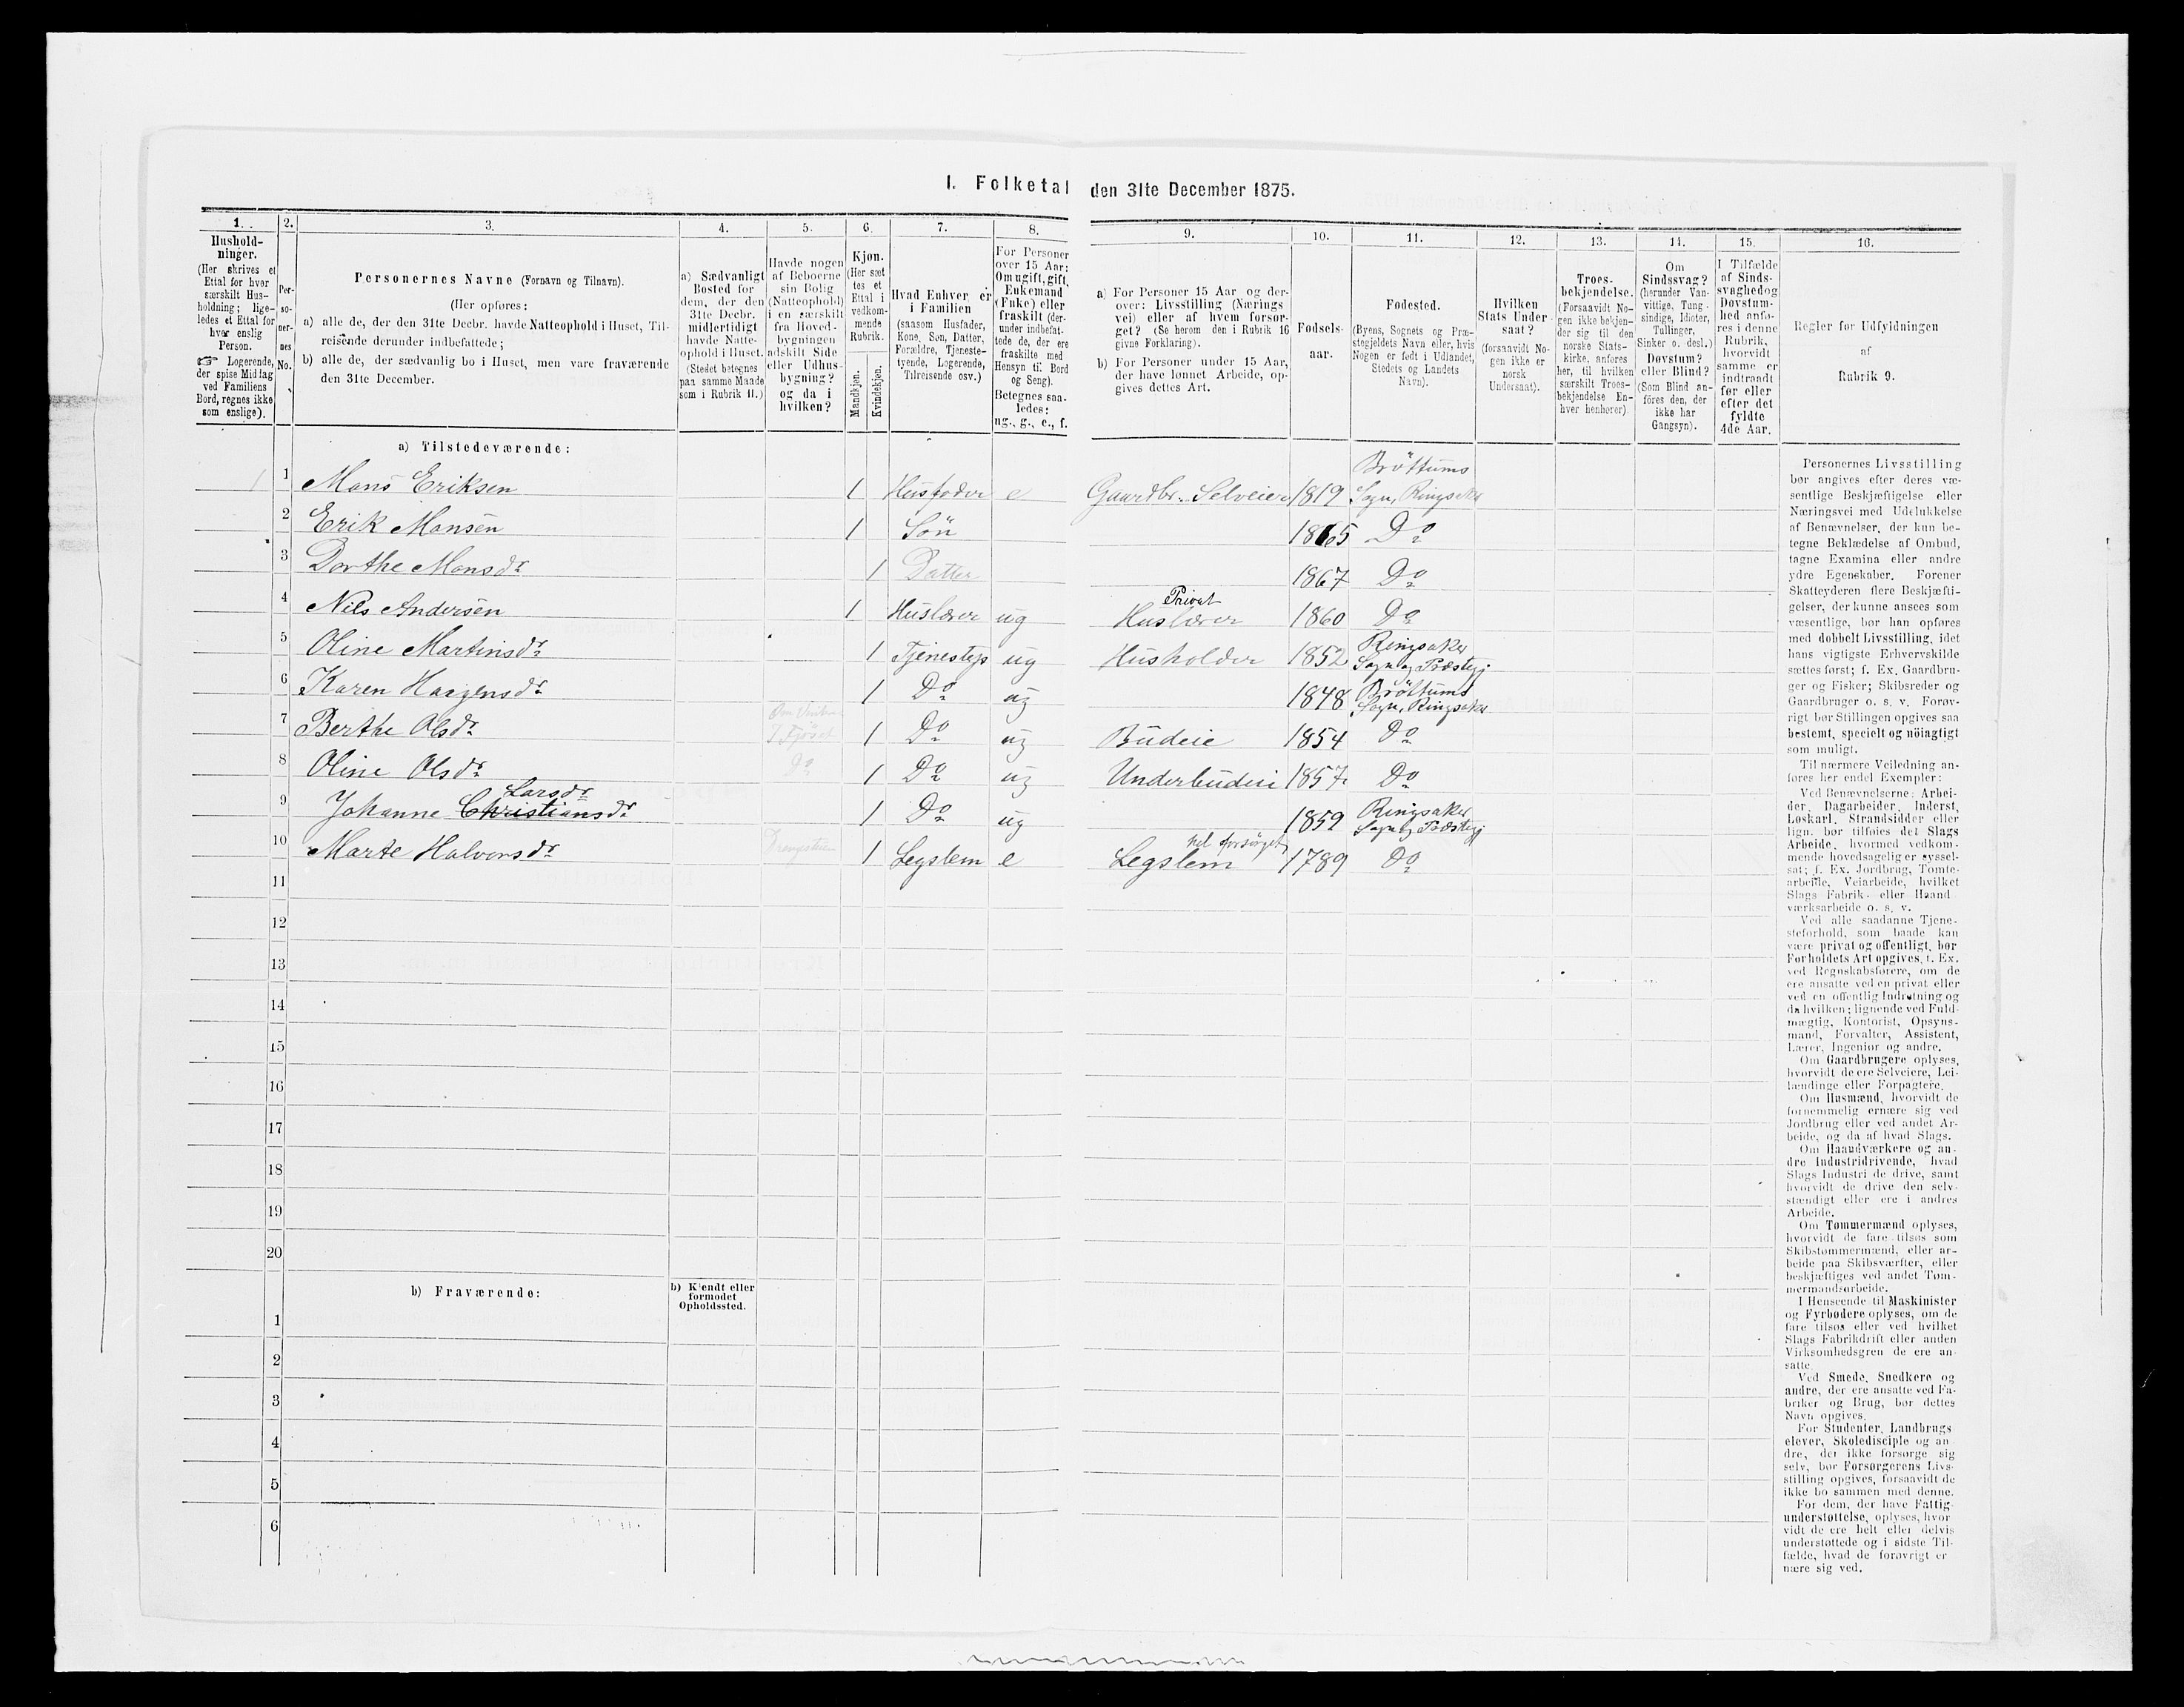 I. Folketal den 31te December 1875.
1. 2. 3. 4. 5. 6. 7. 8. 9. 10. 11. 12. 13. 14. 15. 16.
Hushold-
ninger.
(Her skrives et
Ettal for hver
særskilt Hus-
holdning; lige-
ledes et Ettal for
hver enslig
Person.
☞ Logerende,
der spise Middag
ved Familiens
Bord, regnes ikke
som enslige).
Per-
so-
ner-
nes
No.
Personernes Navne (Fornavn og Tilnavn).
(Her opføres:
a) alle de, der den 31te Decbr. havde Natteophold i Huset, Til-
reisende derunder indbefattede;
b) alle de, der sædvanlig bo i Huset, men vare fraværende
den 31te December.
a) Sædvanligt
Bosted for
dem, der den
31te Decbr.
midlertidigt
havde Natte-
ophold i Huset.
(Stedet betegnes
paa samme Maade
som i Rubrik 11.)
Havde nogen
af Beboerne
sin Bolig
(Natteophold)
i en særskilt
fra Hoved-
bygningen
adskilt Side
eller Udhus-
bygning?
og da i
hvilken?
Kjøn.
(Her sæt
tes et
Ettal i
vedkom-
mende
Rubrik.
Mandkjøn.
Kvindekjøn.
Hvad Enhver er
i Familien
(saasom Husfader,
Kone, Søn, Datter,
Forældre, Tjeneste-
tyende, Logerende,
Tilreisende osv.)
For Personer
over 15 Aar:
Om ugift, gift,
Enkemand
(Enke) eller
fraskilt (der-
under indbefat-
tede de, der ere
fraskilte med
Hensyn til Bord
og Seng).
Betegnes saa-
ledes:
ug., g., e., f.
a) For Personer 15 Aar og der-
over: Livsstilling (Nærings
vei) eller af hvem forsør-
get? (Se herom den i Rubrik 16
givne Forklaring).
b) For Personer under 15 Aar,
der have lønnet Arbeide, op-
gives dettes Art.
Fødsels-
aar.
Fødested.
(Byens, Sognets og Præ-
stegjeldets Navn eller, hvis
Nogen er født i Udlandet,
Stedets og Landets
Navn).
Hvilken
Stats Under-
saat?
(forsaavidt No-
gen ikke er
norsk
Undersaat).
Troes-
bekjendelse.
(Forsaavidt No-
gen ikke bekjen-
der sig til den
norske Stats-
kirke, anføres
her, til hvilken
særskilt Troes-
bekjendelse En-
hver henhører).
Om
Sindssvag?
(herunder Van-
vittige, Tung-
sindige, Idioter,
Tullinger,
Sinker o. desl.)
Døvstum?
eller Blind?
(Som Blind an-
føres den, der
ikke har
Gangsyn).
I Tilfælde
af Sinds-
svaghed og
Døvstum-
hed anfø-
res i denne
Rubrik,
hvorvidt
samme er
indtraadt
før eller
efter det
fyldte
4de Aar.
Regler for Udfyldningen
af
Rubrik 9.
a) Tilstedeværende:
1 1 Mons Eriksen 1 Husfader e Gaardbr. Selveier 1819 Bröttums Sogn, Ringsaker
2 Erik Monsen 1 Søn 1865 Do
3 Dorthe Monsdr 1 Datter 1867 Do
4 Nils Andersen 1 Huslærer ug Privat Huslærer 1860 Do
5 Oline Martinsdr 1 Tjenestep ug Husholder 1852 Ringsaker Sogn og Præstegj
6 Karen Haagensdr 1 Do ug 1848 Bröttums Sogn, Ringsaker
7 Berthe Olsdr I Fjøset 1 Do ug Budeie 1854 Do
8 Oline Olsdr Do 1 Do ug Underbudeie 1857 Do
9 Johanne Christiansdr Larsdr 1 Do ug 1859 Ringsaker Sogn og Præstegj
10 Marte Halvorsdr 1 Legslem e Legslem hel forsørget 1789 Do
11
12
13
14
15
16
17
18
19
20
b) Fraværende:
b) Kjendt eller
formodet
Opholdssted.
1
2
3
4
5
6
Personernes Livsstilling
bør angives efter deres væ-
sentlige Beskjæftigelse eller
Næringsvei med Udelukkelse
af Benævnelser, der kun be-
tegne Beklædelse af Ombud,
tagne Examina eller andre
ydre Egenskaber. Forener
Skatteyderen flere Beskjæfti-
gelser, der kunne ansees som
væsentlige, bør han opføres
med dobbelt Livsstilling, idet
hans vigtigste Erhvervskilde
sættes først; f. Ex. Gaardbru-
ger og Fisker; Skibsreder og
Gaardbruger o. s. v. Forøv-
rigt bør Stillingen opgives saa
bestemt, specielt og nöiagtigt
som muligt.
Til nærmere Veiledning an-
føres her endel Exempler:
Ved Benævnelserne: Arbei-
der, Dagarbeider, Inderst,
Løskarl, Strandsidder eller
lign. bør tilføies det Slags
Arbeide, hvormed vedkom-
mende hovedsagelig er syssel-
sat; f. Ex. Jordbrug, Tomte-
arbeide, Veiarbeide, hvilket
Slags Fabrik- eller Haand
værksarbeide o. s. v.
Ved alle saadanne Tjene-
steforhold, som baade kan
være privat og offentligt, bør
Forholdets Art opgives, f. Ex.
ved Regnskabsførere, om de
ere ansatte ved en privat eller
ved en offentlig Indretning og
da hvilken; lignende ved Fuld-
mægtig, Kontorist, Opsyns-
mand, Forvalter, Assistent,
Lærer, Ingeniør og andre.
Om Gaardbrugere oplyses,
hvorvidt de ere Selveiere, Lei-
lændinge eller Forpagtere.
Om Husmænd, hvorvidt de
fornemmelig ernære sig ved
Jordbrug eller ved andet Ar-
beide, og da af hvad Slags.
Om Haandværkere og an-
dre Industridrivende, hvad
Slags Industri de drive, samt
hvorvidt de drive den selv-
stændigt eller ere i andres
Arbeide.
Om Tømmermænd oplyses,
hvorvidt de fare tilsøs som
Skibstømmermænd, eller ar-
beide paa Skibsværfter, eller
beskjæftiges ved andet Tøm-
mermandsarbeide.
I Henseende til Maskinister
og Fyrbødere oplyses, om de
fare tilsøs eller ved hvilket
Slags Fabrikdrift eller anden
Virksomhedsgren de ere an-
satte.
Ved Smede, Snedkere og
andre, der ere ansatte ved Fa-
briker og Brug, bør dettes
Navn opgives.
For Studenter, Landbrugs
elever, Skoledisciple og an-
dre, der ikke forsørge sig
selv, bør Forsørgerens Livs-
stilling opgives, forsaavidt de
ikke bo sammen med denne.
For dem, der have Fattig-
understøttelse, oplyses, hvor
vidt de ere helt eller delvis
understøttede og i sidste Til-
fælde, hvad de forøvrigt er
nære sig ved.